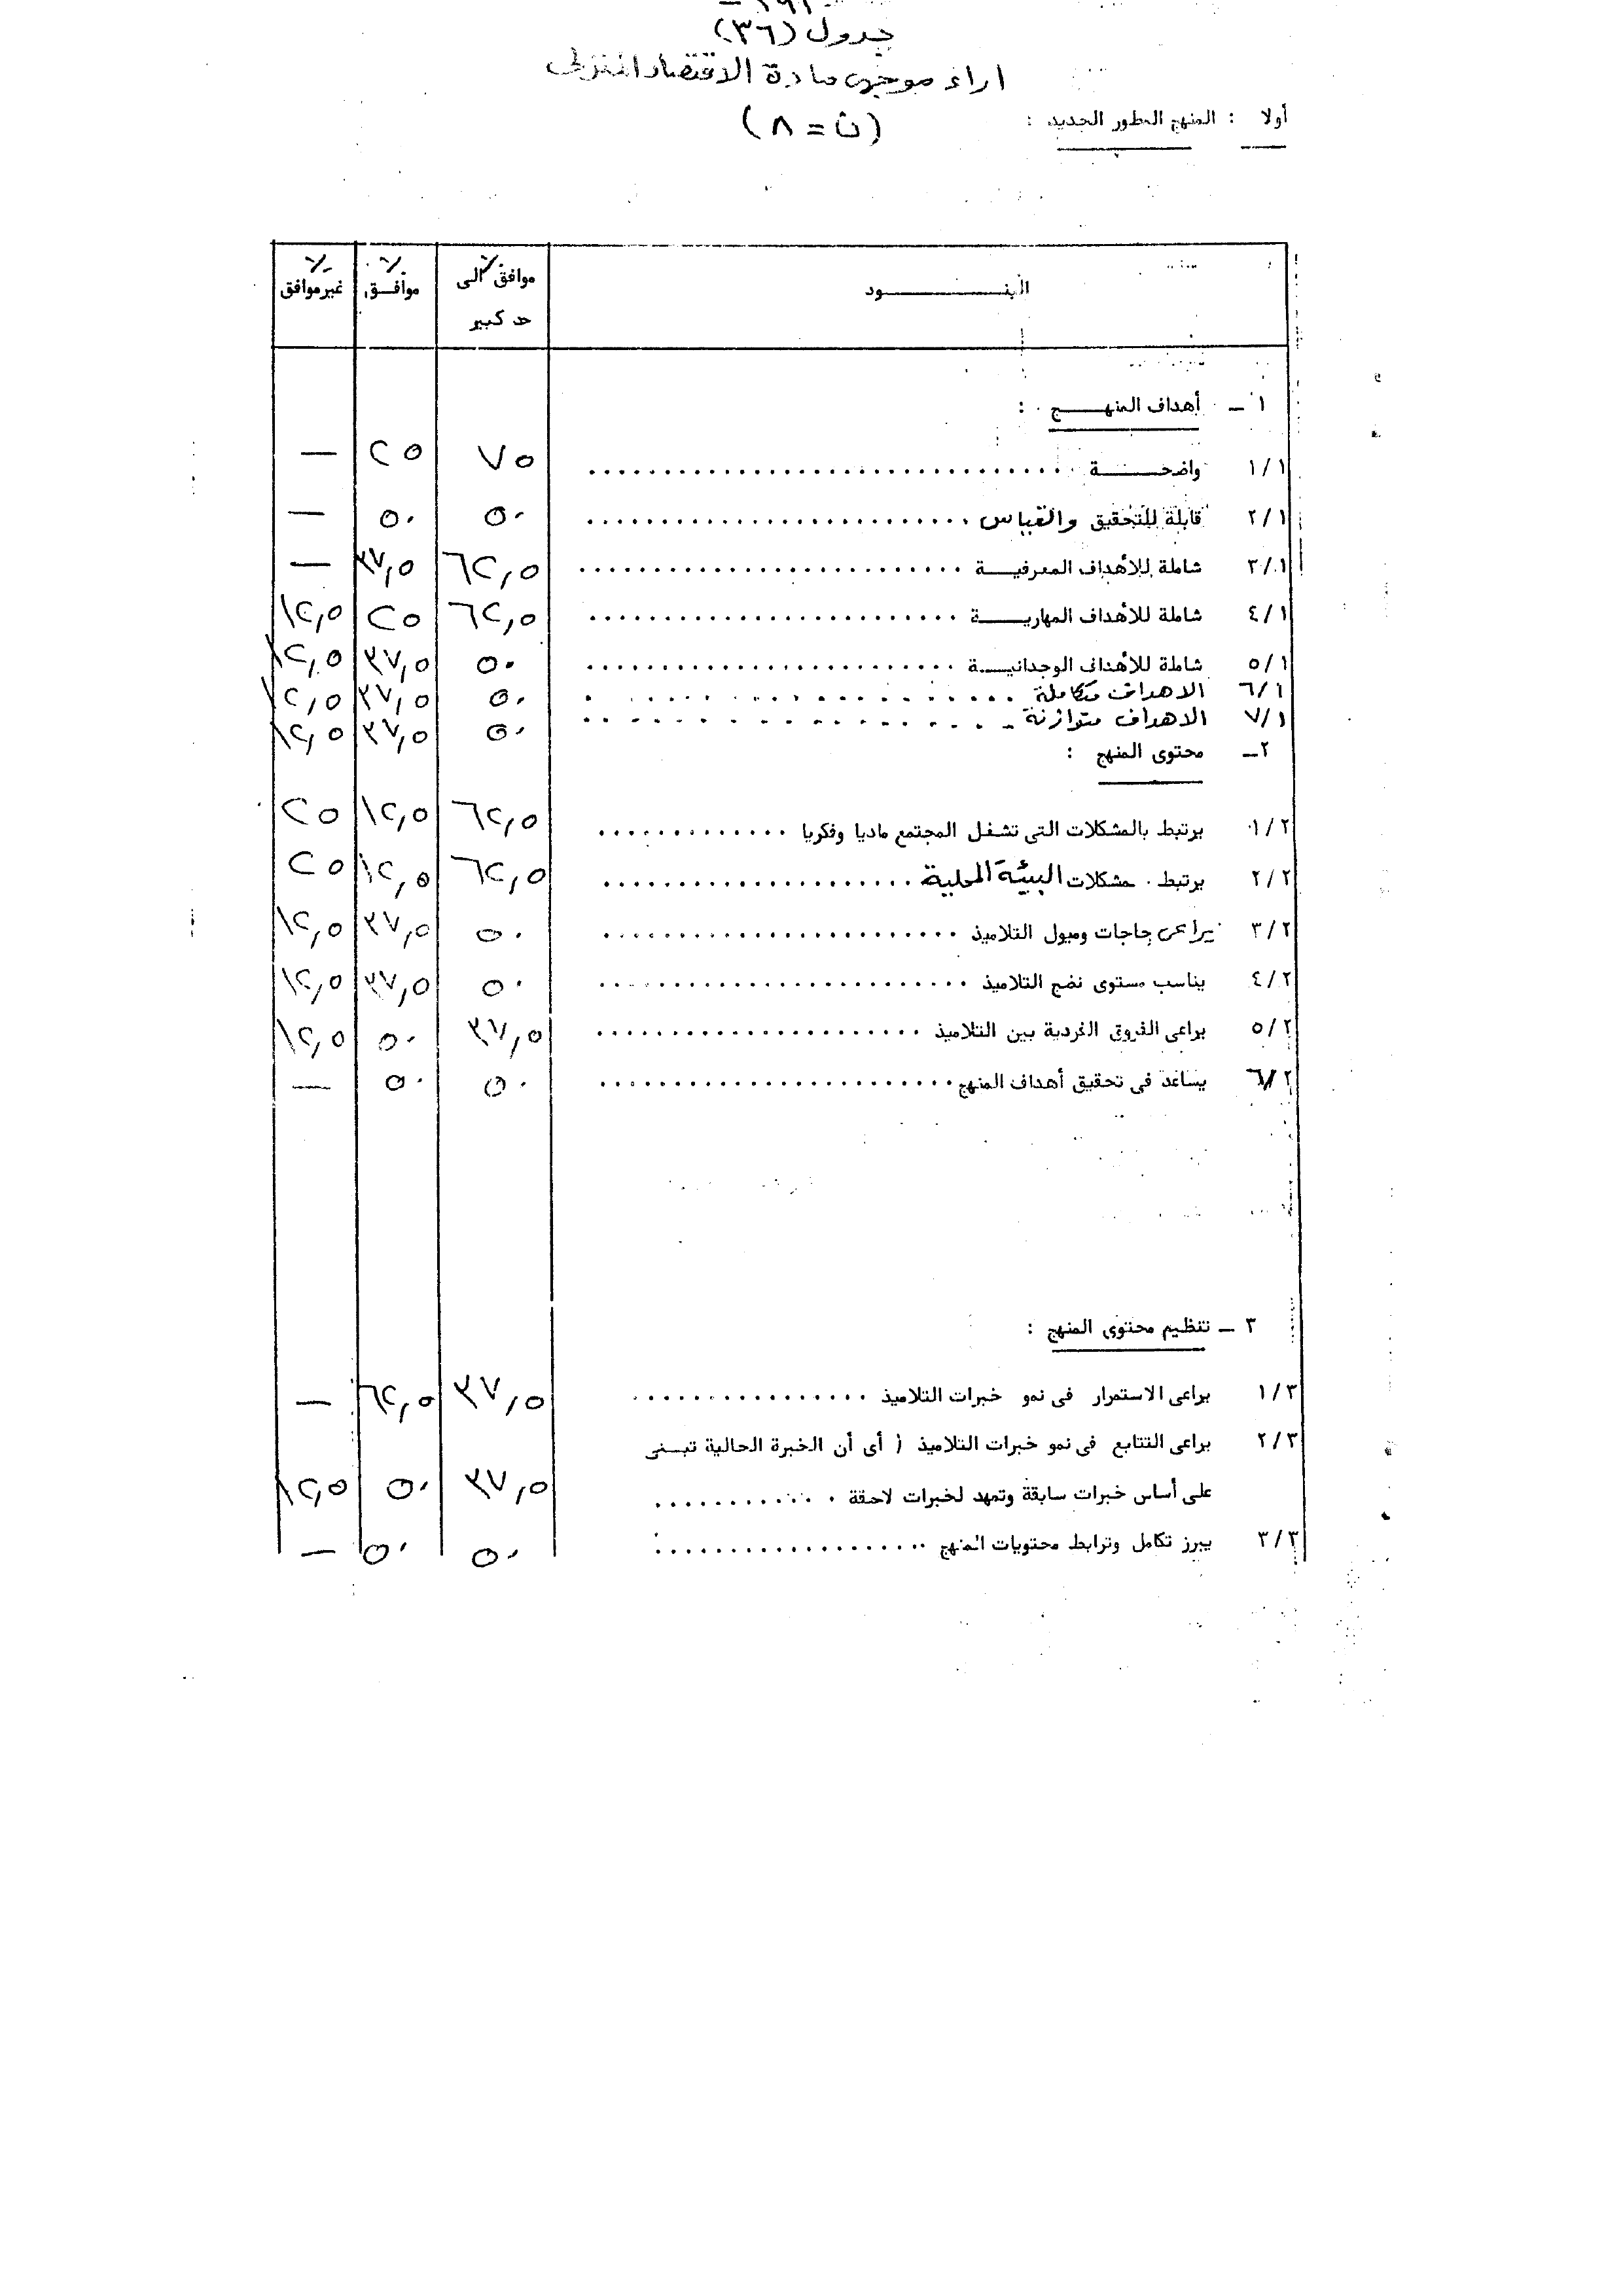 جدول (٣٦)
اراء موجهى مادة الاقتصاد المنزلى
(ن = ٨)
أولا : المنهج المطور الجديد :
البنــــود ٪ موافق الى حد كبير ٪ موافق ٪ غير موافق
١ ــ أهداف المنهــج :
١/١ واضحــة ٧٥ ٢٥ —
٢/١ قابلة للتحقيق والقياس ٥٠ ٥٠ —
٣/١ شاملة للأهداف المعرفيــة ٦٢,٥ ٣٧,٥ —
٤/١ شاملة للأهداف المهاريــة ٦٢,٥ ٢٥ ١٢,٥
٥/١ شاملة للأهداف الوجدانيــة ٥٠ ٣٧,٥ ١٢,٥
٦/١ الاهداف متكاملة ٥٠ ٣٧,٥ ١٢,٥
٧/١ الاهداف متوازنة ٥٠ ٣٧,٥ ١٢,٥
٢ــ محتوى المنهج :
١/٢ يرتبط بالمشكلات التى تشغل المجتمع ماديا وفكريا ٦٢,٥ ١٢,٥ ٢٥
٢/٢ يرتبط بمشكلات البيئة المحلية ٦٢,٥ ١٢,٥ ٢٥
٣/٢ يراعى حاجات وميول التلاميذ ٥٠ ٣٧,٥ ١٢,٥
٤/٢ يناسب مستوى نضج التلاميذ ٥٠ ٣٧,٥ ١٢,٥
٥/٢ يراعى الفروق الفردية بين التلاميذ ٣٧,٥ ٥٠ ١٢,٥
٦/٢ يساعد فى تحقيق أهداف المنهج ٥٠ ٥٠ —
٣ ــ تنظيم محتوى المنهج :
١/٣ يراعى الاستمرار فى نمو خبرات التلاميذ ٣٧,٥ ٦٢,٥ —
٢/٣ يراعى التتابع فى نمو خبرات التلاميذ ( أى أن الخبرة الحالية تبــنى
على أساس خبرات سابقة وتمهد لخبرات لاحقة ٣٧,٥ ٥٠ ١٢,٥
٣/٣ يبرز تكامل وترابط محتويات المنهج ٥٠ ٥٠ —